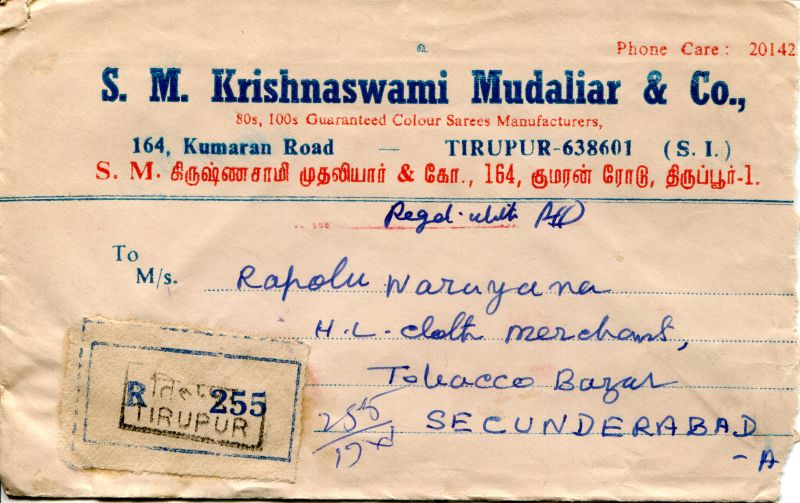 உ
Phone Care : 20142
S. M. Krishnaswami Mudaliar & Co.,
80s, 100s Guaranteed Colour Sarees Manufacturers,
164, Kumaran Road — TIRUPUR-638601 (S. I.)
S. M. கிருஷ்ணசாமி முதலியார் & கோ., 164, குமரன் ரோடு, திருப்பூர்-1.
Regd. with A/D
To
M/s. Rapolu Narayana
H. L. cloth merchant,
Tobacco Bazar
SECUNDERABAD
- A
R 255
TIRUPUR
255